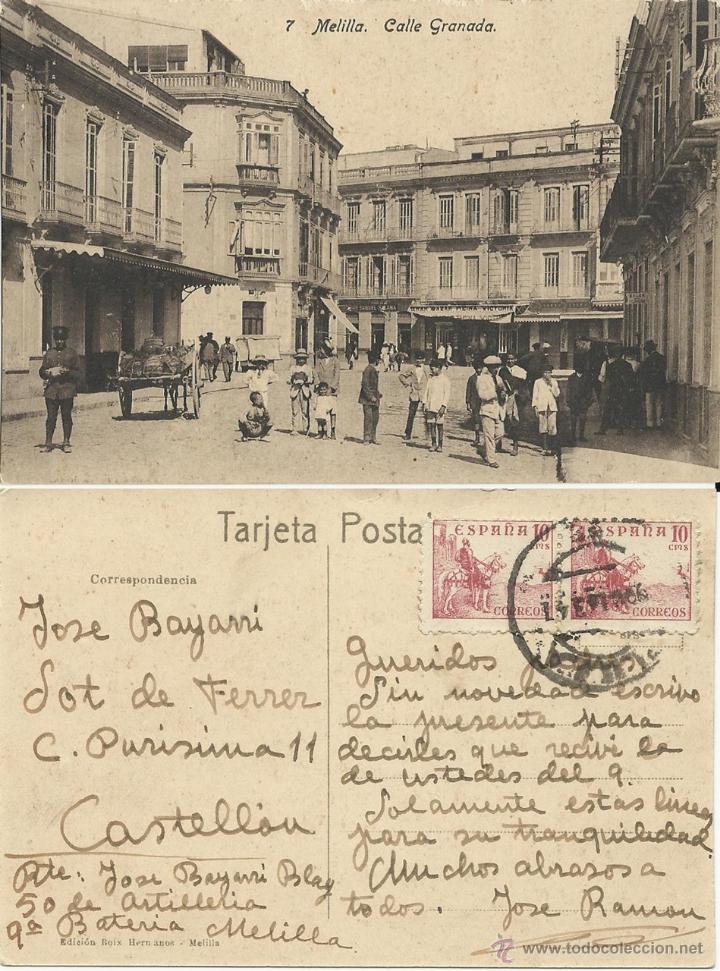 7 Melilla. Calle Granada.
Tarjeta Posta
ESPAÑA 10
CTMS
CORREOS
ESPAÑA 10
CTMS
CORREOS
Correspondencia
Jose Bayarri
Sot de Ferrer
C. Purisima 11
Castellón
Rte: Jose Bayarri Blay
50 de Artilleria
9ª Bateria Melilla
Edición Boix Hermanos - Melilla
Queridos
Sin novedad escrivo
la presente para
decirles que recivi la
de ustedes del 9.
Solamente estas lineas
para su tranquilidad
Muchos abrazos a
todos. Jose Ramon
www.todocoleccion.net